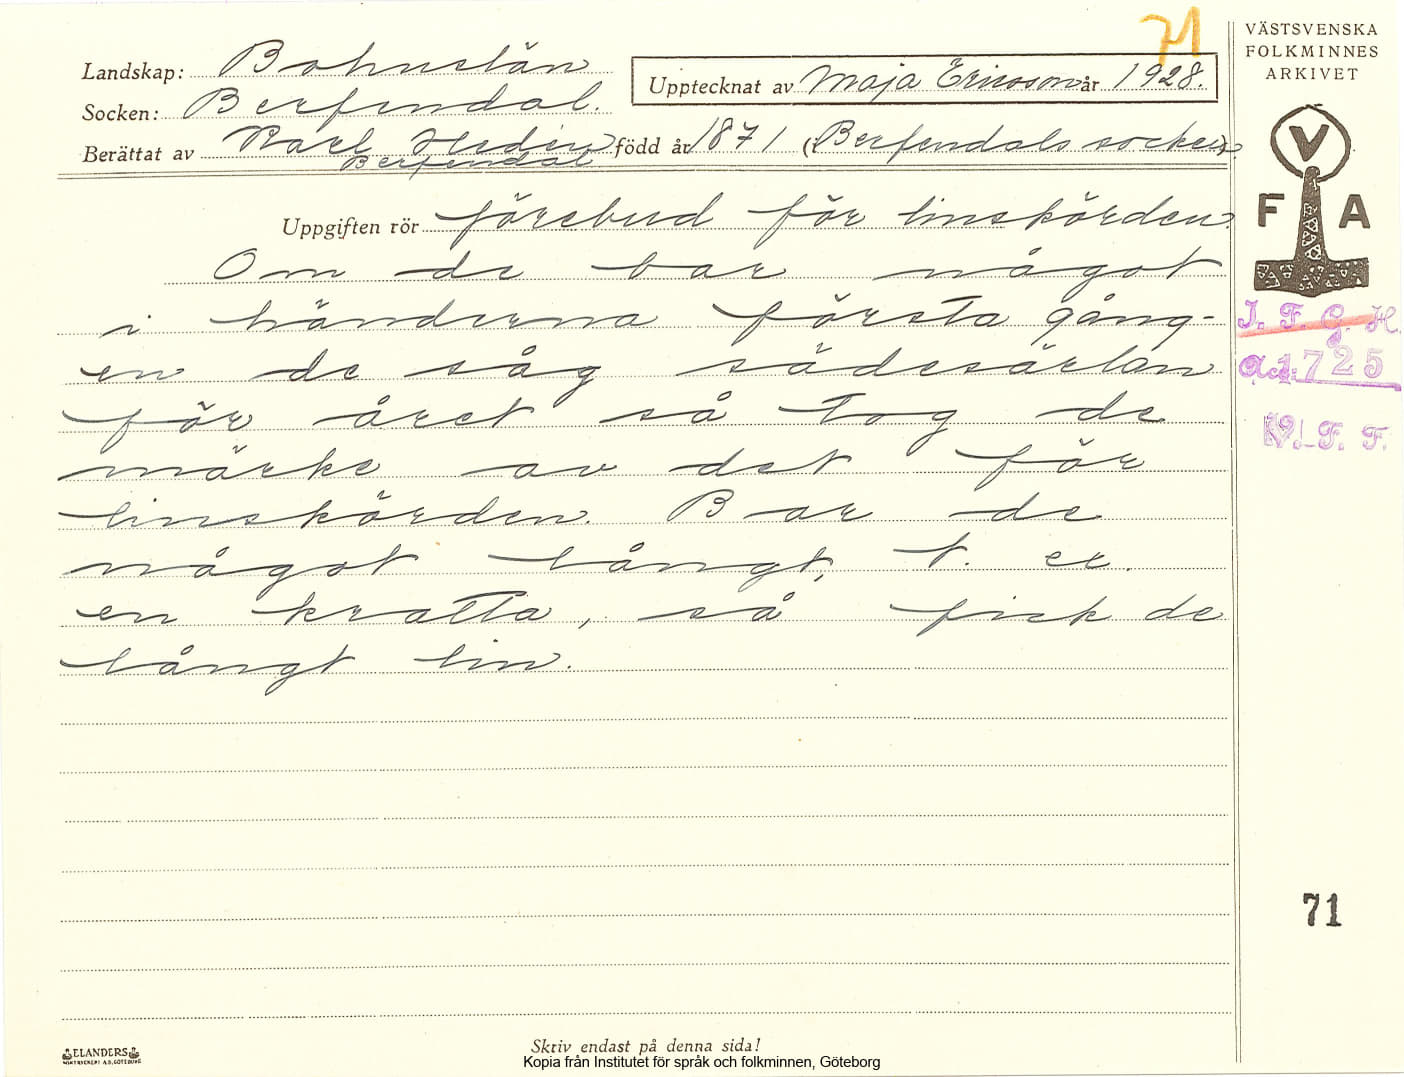 71
VÄSTSVENSKA
FOLKMINNES
ARKIVET
Landskap: Bohuslän
Upptecknat av Maja Ericsson år 1928.
Socken: Berfendal.
Berättat av Karl Hedin född år 1871 (i Berfendals socken)
Berfendal
V
F A
Uppgiften rör förebud för linskörden.
Om de bar något
i händerna första gång-
en de såg sädesärlan
för året så tog de
märke av det för
linskörden. Bar de
något långt, t. ex.
en kratta, så fick de
långt lin.
I. F. G. H.
Acc: 1725
V. F. F.
71
ELANDERS
BOKTRYCKERI A.B. GÖTEBORG
Skriv endast på denna sida!
Kopia från Institutet för språk och folkminnen, Göteborg